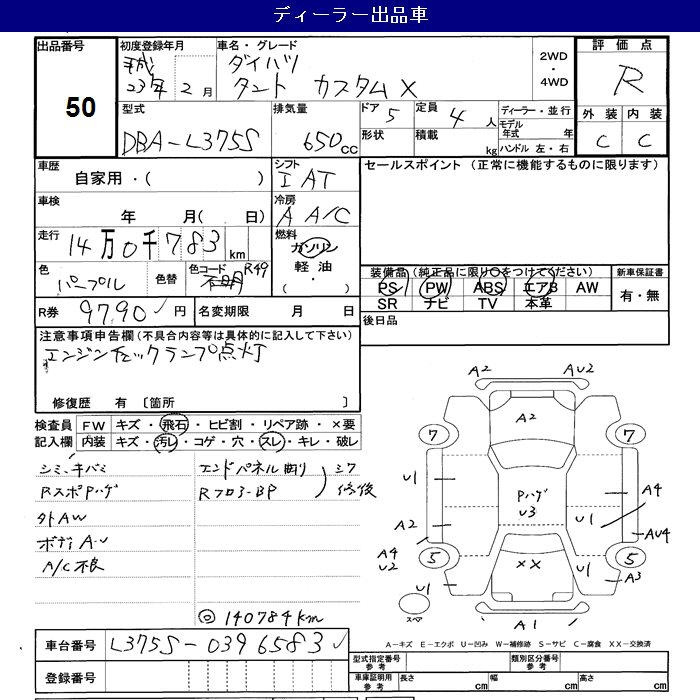 ディーラー出品車
出品番号 50
初度登録年月 平成 23年 2月
車名・グレード ダイハツ タント カスタムX
2WD・4WD
評価点 R
外装 内装
C C
型式 DBA-L375S
排気量 650cc
ドア 5
定員 4人
形状
積載 kg
ディーラー・並行
モデル年式 年
ハンドル 左・右
車歴 自家用・( )
シフト IAT
セールスポイント (正常に機能するものに限ります)
車検 年 月( 日)
冷房 A A/C
走行 14万0千783km
燃料 ガソリン
軽油・
色 パープル 色替
色コード 不明 R49
装備品(純正品に限り○をつけてください)
PS PW ABS エアB AW
SR ナビ TV 本革
新車保証書
有・無
R券 9790円
名変期限 月 日
後日品
注意事項申告欄(不具合内容等は具体的に記入して下さい)
エンジンチェックランプ点灯
修復歴 有 〔箇所 〕
検査員記入欄
FW キズ・飛石・ヒビ割・リペア跡・×要
内装 キズ・汚レ・コゲ・穴・スレ・キレ・破レ
シミ、キバミ
RスポPハゲ
外AW
ボディA・U
A/C不良
エンドパネル曲り
Rフロア3-BP
シワ
修後
◎140784km
A2 AU2
A2
7 7
U1 Pハゲ U3 U1 A4
A2 AU4
A4 U2
5 5
XX
U1 U1 A3
スペア
A1
車台番号 L375S-0396583
登録番号
A-キズ E-エクボ U-凹み W-補修跡 S-サビ C-腐食 XX-交換済
型式指定番号 参考
類別区分番号 参考
車庫証明用 参考
長さ cm 幅 cm 高さ cm